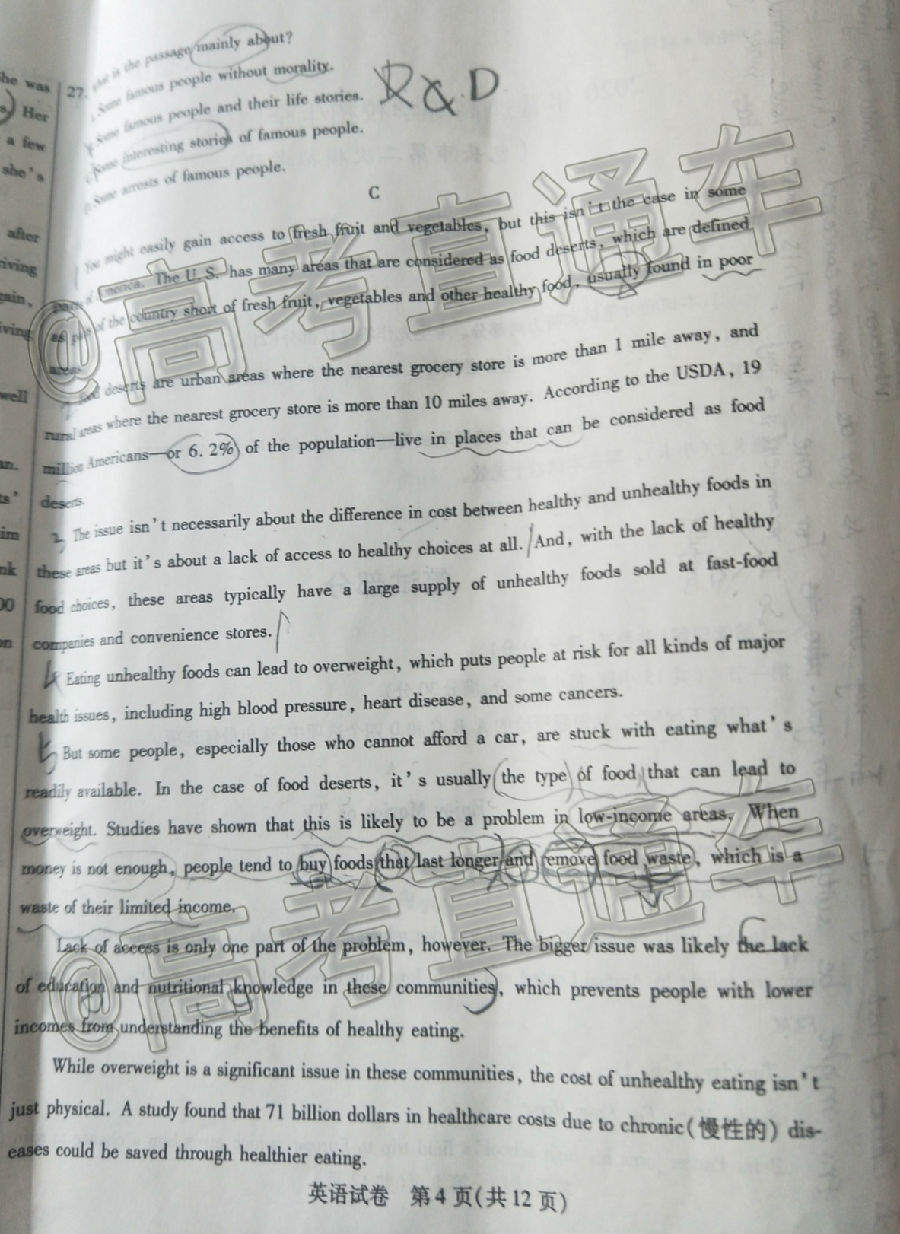 27. What is the passage mainly about?
A. Some famous people without morality.
B. Some famous people and their life stories.
C. Some interesting stories of famous people.
D. Some arrests of famous people.
R & D
C
You might easily gain access to fresh fruit and vegetables, but this isn't the case in some
of America. The U. S. has many areas that are considered as food deserts, which are defined
as parts of the country short of fresh fruit, vegetables and other healthy food, usually found in poor
areas.
Food deserts are urban areas where the nearest grocery store is more than 1 mile away, and
rural areas where the nearest grocery store is more than 10 miles away. According to the USDA, 19
million Americans—or 6. 2% of the population—live in places that can be considered as food
deserts.
2. The issue isn't necessarily about the difference in cost between healthy and unhealthy foods in
these areas but it's about a lack of access to healthy choices at all. And, with the lack of healthy
food choices, these areas typically have a large supply of unhealthy foods sold at fast-food
companies and convenience stores.
Eating unhealthy foods can lead to overweight, which puts people at risk for all kinds of major
health issues, including high blood pressure, heart disease, and some cancers.
But some people, especially those who cannot afford a car, are stuck with eating what's
readily available. In the case of food deserts, it's usually the type of food that can lead to
overweight. Studies have shown that this is likely to be a problem in low-income areas. When
money is not enough, people tend to buy foods that last longer and remove food waste, which is a
waste of their limited income.
Lack of access is only one part of the problem, however. The bigger issue was likely the lack
of education and nutritional knowledge in these communities, which prevents people with lower
incomes from understanding the benefits of healthy eating.
While overweight is a significant issue in these communities, the cost of unhealthy eating isn't
just physical. A study found that 71 billion dollars in healthcare costs due to chronic(慢性的) dis-
eases could be saved through healthier eating.
英语试卷 第 4 页(共 12 页)
he was
Her
a few
she's
after
iving
gain,
iving
well
an.
ts'
im
nk
00
on
@高考直通车
@高考直通车